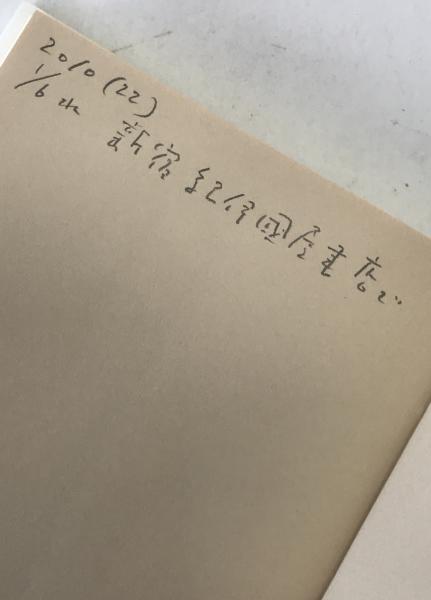 2010 (22)
1/6 水 新宿紀伊國屋書店